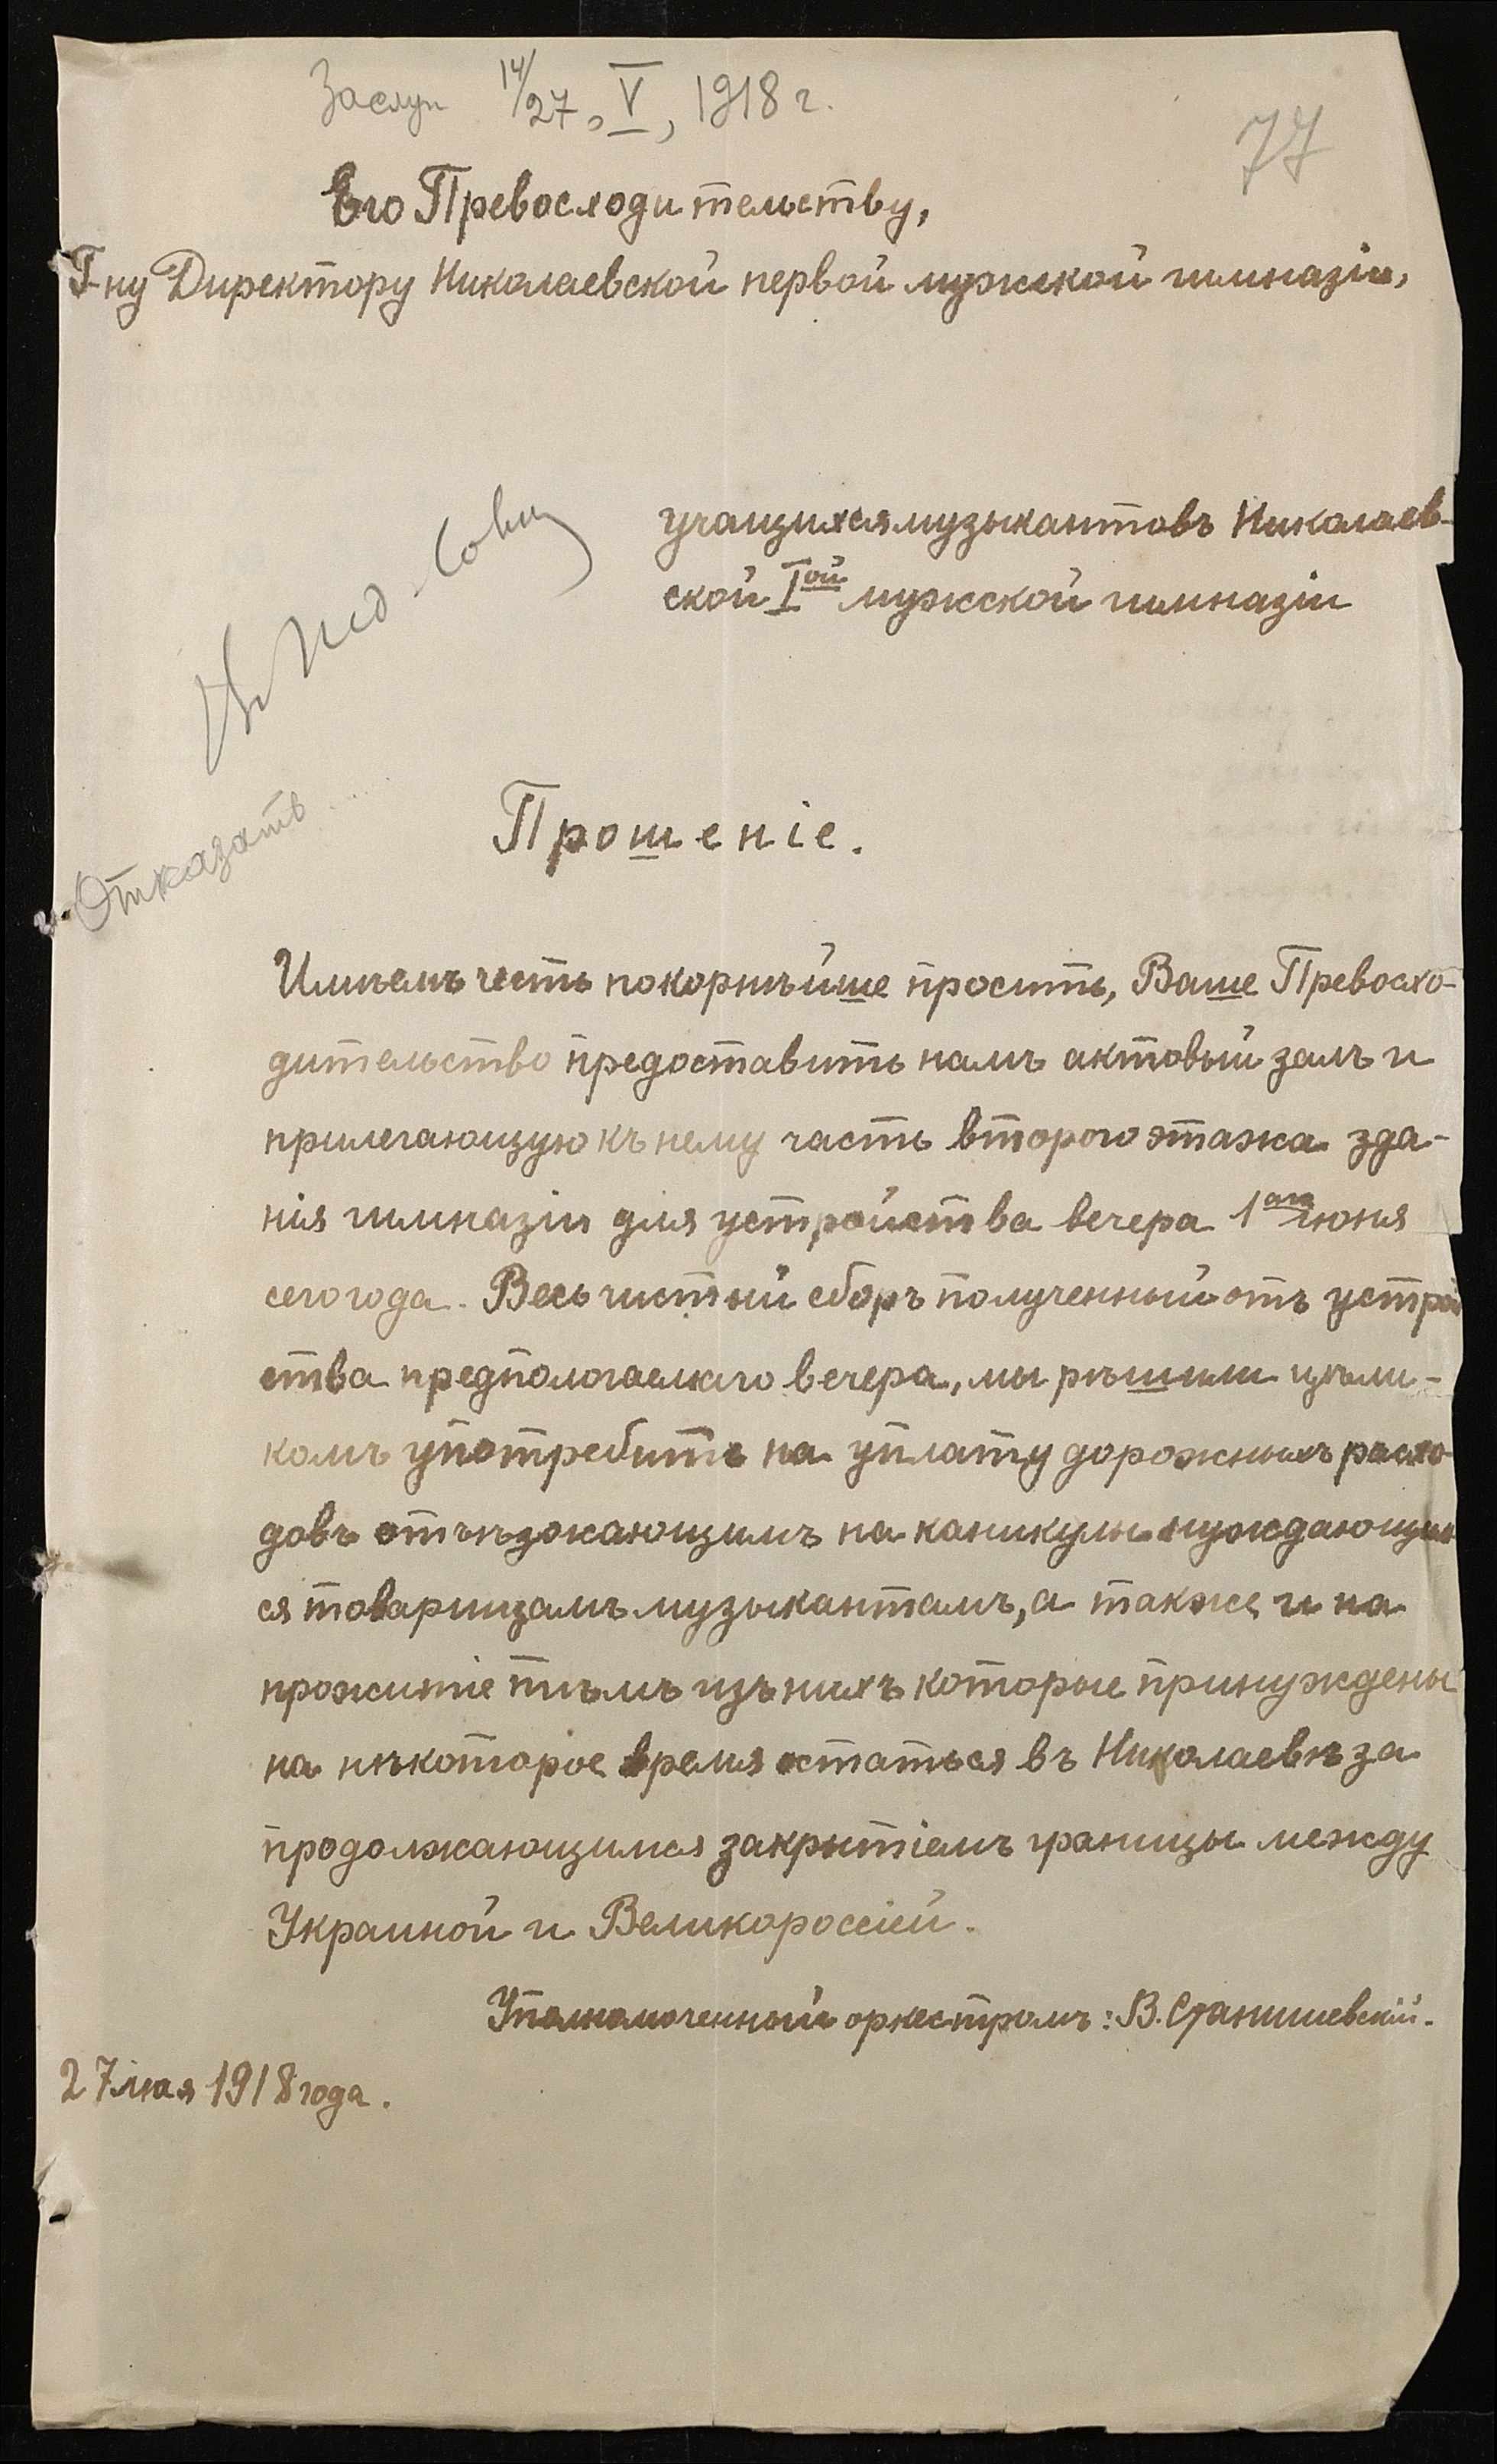 Заслуш 14/27, V, 1918 г.
77
Его Превосходительству,
Г-ну Директору Николаевской первой мужской гимназіи,
учащихся музыкантовъ Николаев-
ской I ой мужской гимназіи
Пед Совѣ
Отказать
Прошеніе.
Имѣемъ честь покорнѣйше просить, Ваше Превосхо-
дительство предоставить намъ актовый залъ и
прилегающую къ нему часть второго этажа зда-
нія гимназіи для устройства вечера 1 го іюня
сего года. Весь чистый сборъ полученный отъ устрой
ства предпологаемаго вечера, мы рѣшили цѣли-
комъ употребить на уплату дорожныхъ расхо-
довъ отъѣзжающимъ на каникулы нуждающим
ся товарищамъ музыкантамъ, а также и на
прожитіе тѣмъ изъ нихъ которые принуждены
на нѣкоторое время остаться въ Николаевѣ за
продолжающимся закрытіемъ границы между
Украиной и Великороссіей.
Уполномоченный оркестромъ: В. Станишевскій.
27 мая 1918 года.